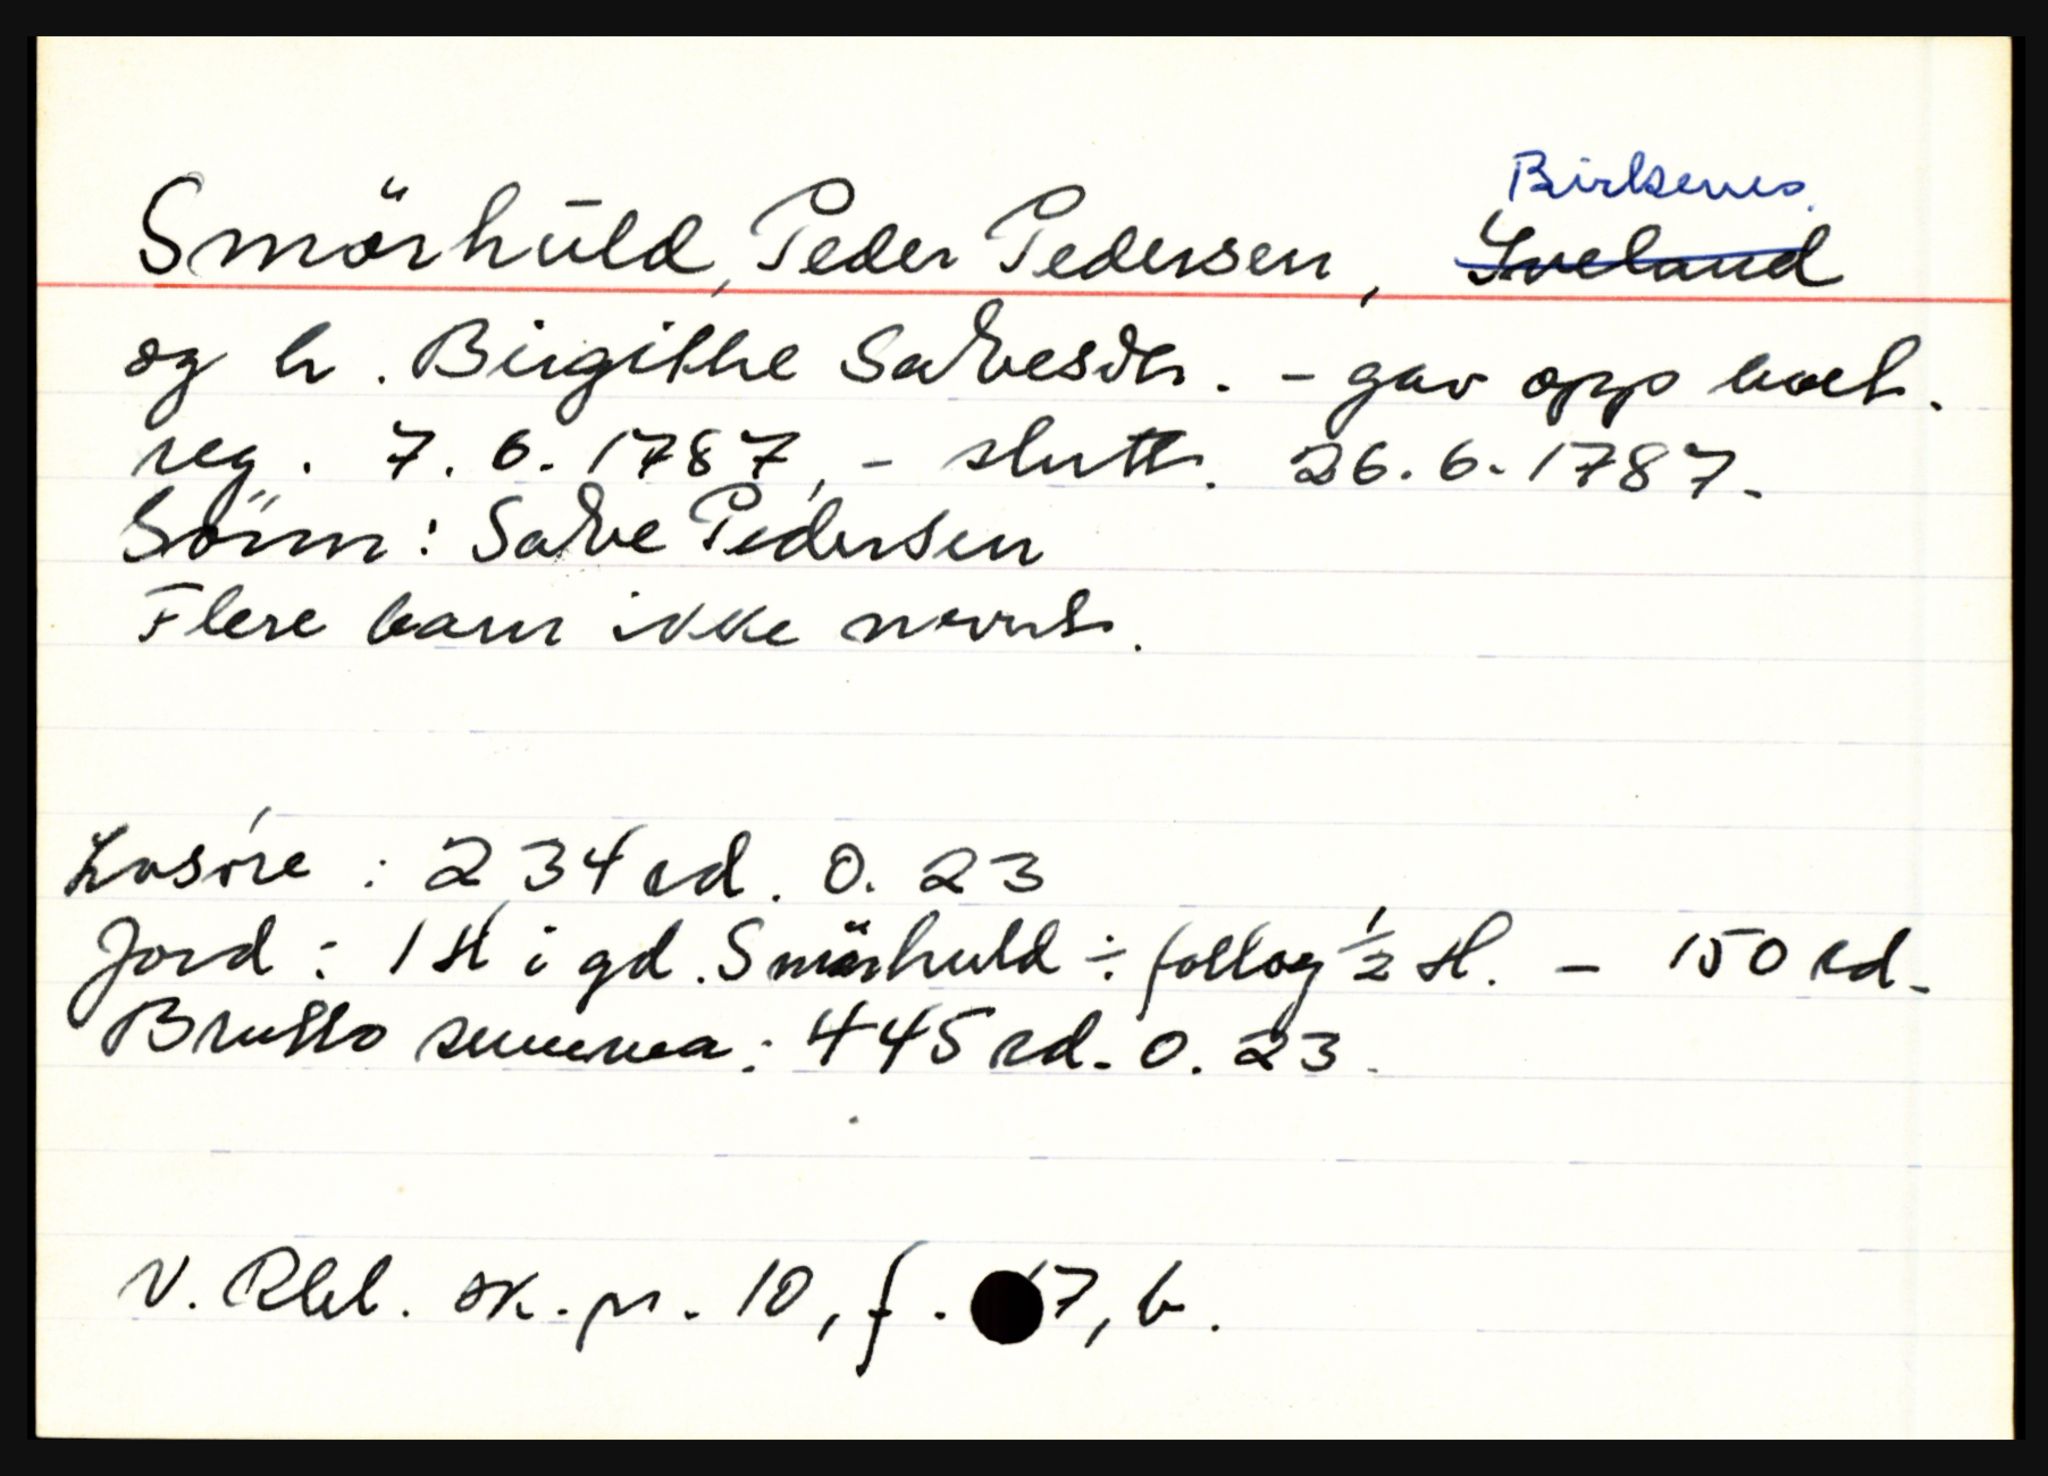 Birkenes
Smörhuld, Peder Pedersen, Iveland
og h. Birgithe Salvesdtr. - gav opp boet.
reg. 7.6.1787, - slutt. 26.6.1787.
Sönn: Salve Pedersen
Flere barn ikke nevnt.
Lösöre : 234 rd. 0. 23
Jord : 1 H i gd. Smörhuld ÷ follog 1/2 H. - 150 rd.
Brutto summa: 445 rd. 0. 23.
V. Rbl. sk. pr. 10, f. 7, b.